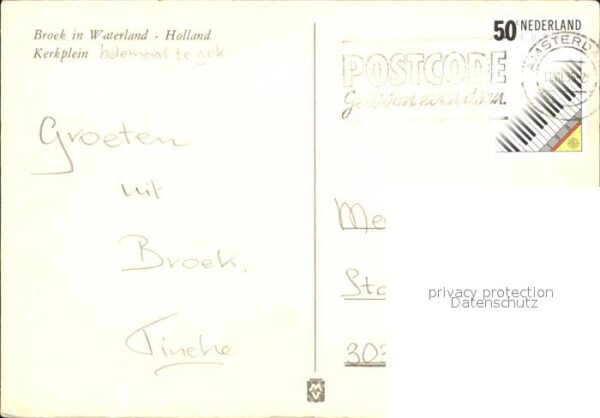 Broek in Waterland - Holland
Kerkplein helemaal te gek
50 NEDERLAND
AMSTERDA
POSTCODE
Gewoon even doen.
Groeten
uit
Broek.
Tineke
Me
Sta
303
privacy protection
Datenschutz